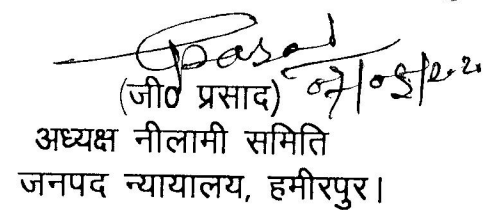 (जी0 प्रसाद)
अध्यक्ष नीलामी समिति
जनपद न्यायालय, हमीरपुर।